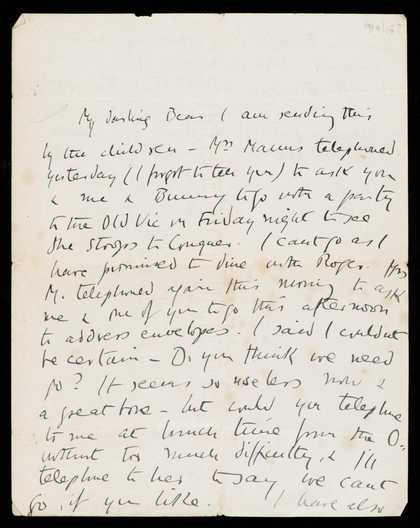 My darling Bear I am sending this
by the children – Mrs Manus telephoned
yesterday (I forgot to tell you) to ask you
& me & Bunny to go with a party
to the Old Vic on Friday night to see
She Stoops to Conquer. I cant go as I
have promised to dine with Roger. Mrs
M. telephoned again this morning to ask
me & one of you to go this afternoon
to address envelopes. I said I couldnt
be certain – Do you think we need
go? It seems so useless now &
a great bore – but could you telephone
to me at lunch time from the O..
without too much difficulty, & I'll
telephone to her to say we cant
go, if you like. I have also